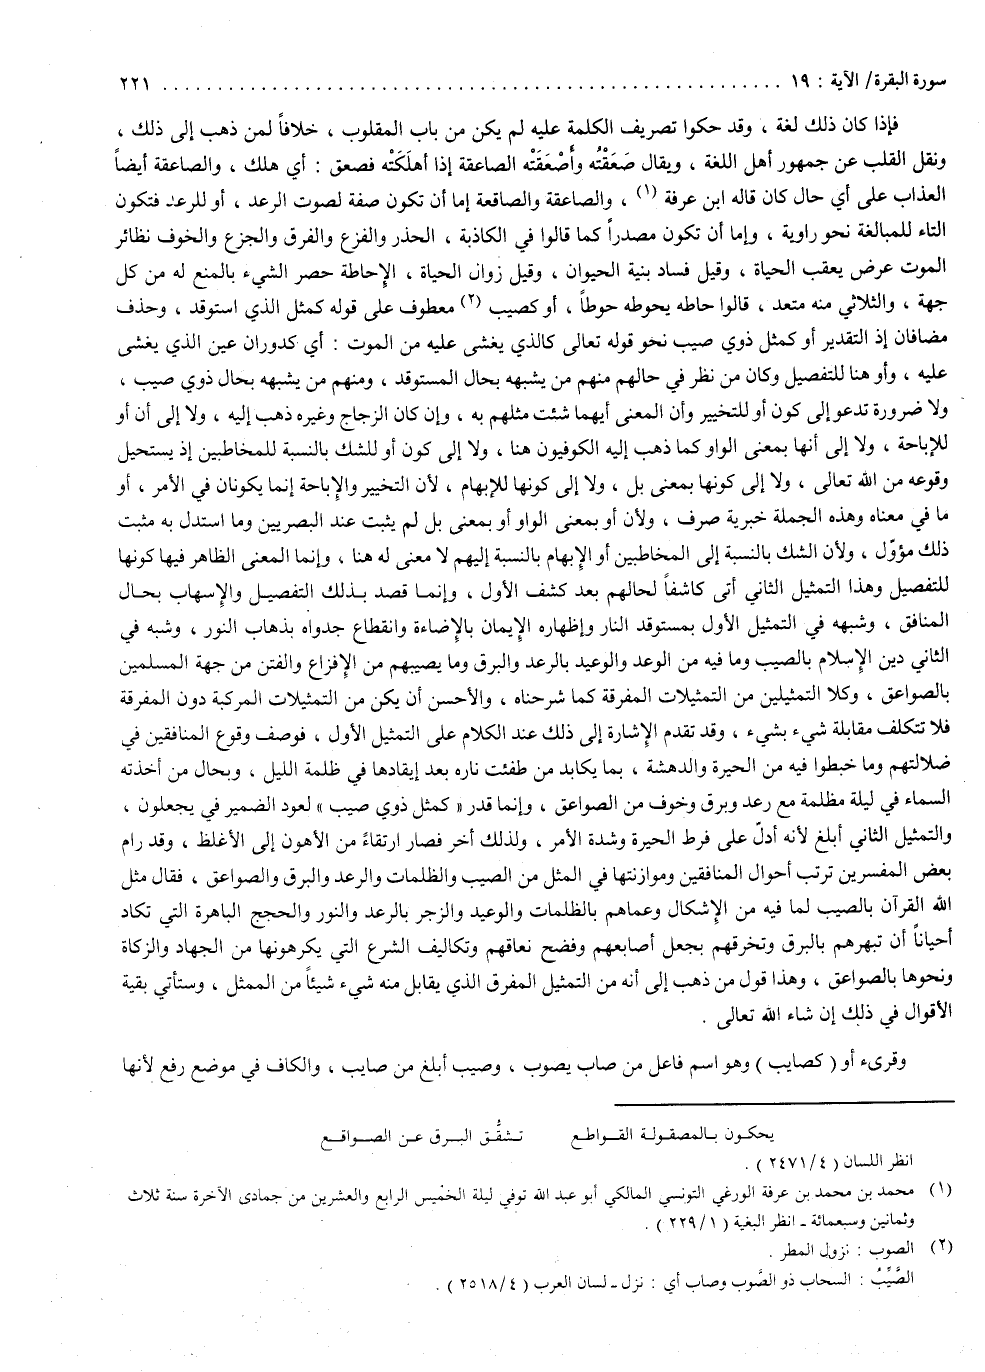 سورة البقرة/ الآية : ١٩ ............................................................ ٢٢١
فإذا كان ذلك لغة ، وقد حكوا تصريف الكلمة عليه لم يكن من باب المقلوب ، خلافاً لمن ذهب إلى ذلك ،
ونقل القلب عن جمهور أهل اللغة ، ويقال صَعَقْتُه وأَصْعَقَتْه الصاعقة إذا أهلَكَتْه فصعق : أي هلك ، والصاعقة أيضاً
العذاب على أي حال كان قاله ابن عرفة (١) ، والصاعقة والصاقعة إما أن تكون صفة لصوت الرعد ، أو للرعد فتكون
التاء للمبالغة نحو راوية ، وإما أن تكون مصدراً كما قالوا في الكاذبة ، الحذر والفزع والفرق والجزع والخوف نظائر
الموت عرض يعقب الحياة ، وقيل فساد بنية الحيوان ، وقيل زوال الحياة ، الإحاطة حصر الشيء بالمنع له من كل
جهة ، والثلاثي منه متعد ، قالوا حاطه يحوطه حوطاً ، أو كصيب (٢) معطوف على قوله كمثل الذي استوقد ، وحذف
مضافان إذ التقدير أو كمثل ذوي صيب نحو قوله تعالى كالذي يغشى عليه من الموت : أي كدوران عين الذي يغشى
عليه ، وأو هنا للتفصيل وكان من نظر في حالهم منهم من يشبهه بحال المستوقد ، ومنهم من يشبهه بحال ذوي صيب ،
ولا ضرورة تدعو إلى كون أو للتخيير وأن المعنى أيهما شئت مثلهم به ، وإن كان الزجاج وغيره ذهب إليه ، ولا إلى أن أو
للإباحة ، ولا إلى أنها بمعنى الواو كما ذهب إليه الكوفيون هنا ، ولا إلى كون أو للشك بالنسبة للمخاطبين إذ يستحيل
وقوعه من الله تعالى ، ولا إلى كونها بمعنى بل ، ولا إلى كونها للإبهام ، لأن التخيير والإباحة إنما يكونان في الأمر ، أو
ما في معناه وهذه الجملة خبرية صرف ، ولأن أو بمعنى الواو أو بمعنى بل لم يثبت عند البصريين وما استدل به مثبت
ذلك مؤوّل ، ولأن الشك بالنسبة إلى المخاطبين أو الإبهام بالنسبة إليهم لا معنى له هنا ، وإنما المعنى الظاهر فيها كونها
للتفصيل وهذا التمثيل الثاني أتى كاشفاً لحالهم بعد كشف الأول ، وإنما قصد بذلك التفصيل والإسهاب بحال
المنافق ، وشبهه في التمثيل الأول بمستوقد النار وإظهاره الإيمان بالإضاءة وانقطاع جدواه بذهاب النور ، وشبه في
الثاني دين الإسلام بالصيب وما فيه من الوعد والوعيد بالرعد والبرق وما يصيبهم من الإفزاع والفتن من جهة المسلمين
بالصواعق ، وكلا التمثيلين من التمثيلات المفرقة كما شرحناه ، والأحسن أن يكن من التمثيلات المركبة دون المفرقة
فلا تتكلف مقابلة شيء بشيء ، وقد تقدم الإشارة إلى ذلك عند الكلام على التمثيل الأول ، فوصف وقوع المنافقين في
ضلالتهم وما خبطوا فيه من الحيرة والدهشة ، بما يكابد من طفئت ناره بعد إيقادها في ظلمة الليل ، وبحال من أخذته
السماء في ليلة مظلمة مع رعد وبرق وخوف من الصواعق ، وإنما قدر « كمثل ذوي صيب » لعود الضمير في يجعلون ،
والتمثيل الثاني أبلغ لأنه أدلّ على فرط الحيرة وشدة الأمر ، ولذلك أخر فصار ارتقاءً من الأهون إلى الأغلظ ، وقد رام
بعض المفسرين ترتب أحوال المنافقين وموازنتها في المثل من الصيب والظلمات والرعد والبرق والصواعق ، فقال مثل
الله القرآن بالصيب لما فيه من الإشكال وعماهم بالظلمات والوعيد والزجر بالرعد والنور والحجج الباهرة التي تكاد
أحياناً أن تبهرهم بالبرق وتخرقهم بجعل أصابعهم وفضح نعاقهم وتكاليف الشرع التي يكرهونها من الجهاد والزكاة
ونحوها بالصواعق ، وهذا قول من ذهب إلى أنه من التمثيل المفرق الذي يقابل منه شيء شيئاً من الممثل ، وستأتي بقية
الأقوال في ذلك إن شاء الله تعالى .
وقرىء أو ( كصايب ) وهو اسم فاعل من صاب يصوب ، وصيب أبلغ من صايب ، والكاف في موضع رفع لأنها
يحكون بالمصقولة القواطع تشقُّق البرق عن الصواقع
انظر اللسان ( ٢٤٧١/٤ ) .
(١) محمد بن محمد بن عرفة الورغي التونسي المالكي أبو عبد الله توفي ليلة الخميس الرابع والعشرين من جمادى الآخرة سنة ثلاث
وثمانين وسبعمائة ـ انظر البغية ( ٢٢٩/١ ) .
(٢) الصوب : نزول المطر .
الصَّيِّبُ : السحاب ذو الصَّوب وصاب أي : نزل ـ لسان العرب ( ٢٥١٨/٤ ) .